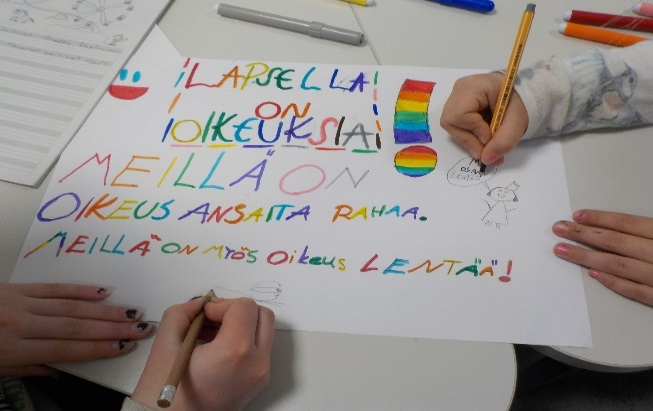 LAPSELLA
ON
OIKEUKSIA!
MEILLÄ ON
OIKEUS ANSAITA RAHAA.
MEILLÄ ON MYÖS OIKEUS LENTÄÄ!